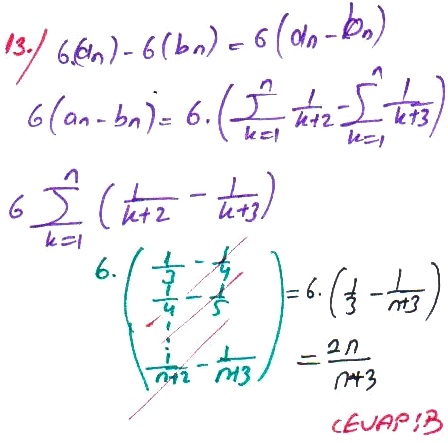 13.) 6(an) - 6(bn) = 6(an - bn)
6(an - bn) = 6 . (∑ⁿₖ₌₁ 1/k+2 - ∑ⁿₖ₌₁ 1/k+3)
6 ∑ⁿₖ₌₁ (1/k+2 - 1/k+3)
6. (1/3 - 1/4
1/4 - 1/5
⋮
1/n+2 - 1/n+3) = 6 . (1/3 - 1/n+3)
= 2n/n+3
CEVAP : B